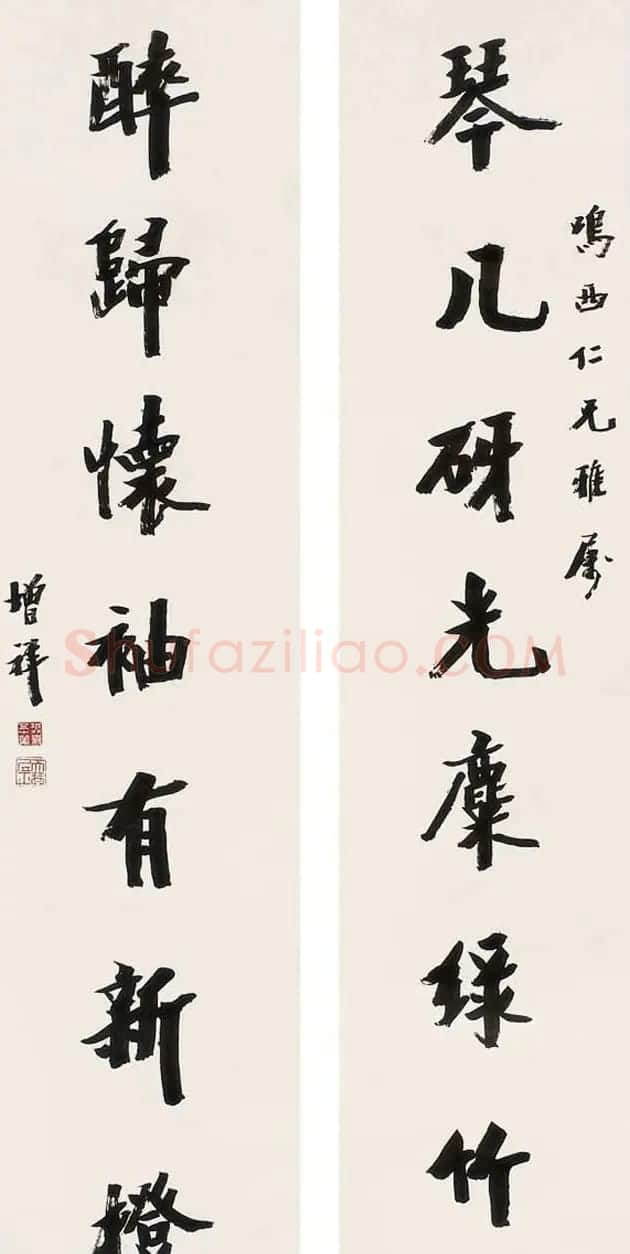 鳴西仁兄雅属
琴几研光麋绿竹
醉歸懷袖有新橙
增祥
Shufaziliao.COM